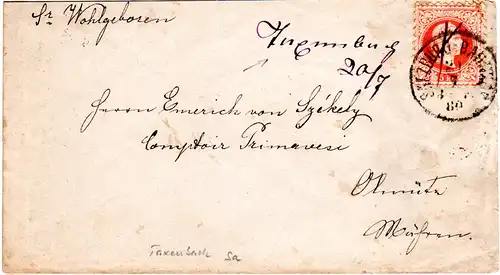 Sr Wohlgeboren
20/7
Herrn Emerich von Székely
Comptoir Primavesi
Olmütz
Mähren.
Taxenbach Sa